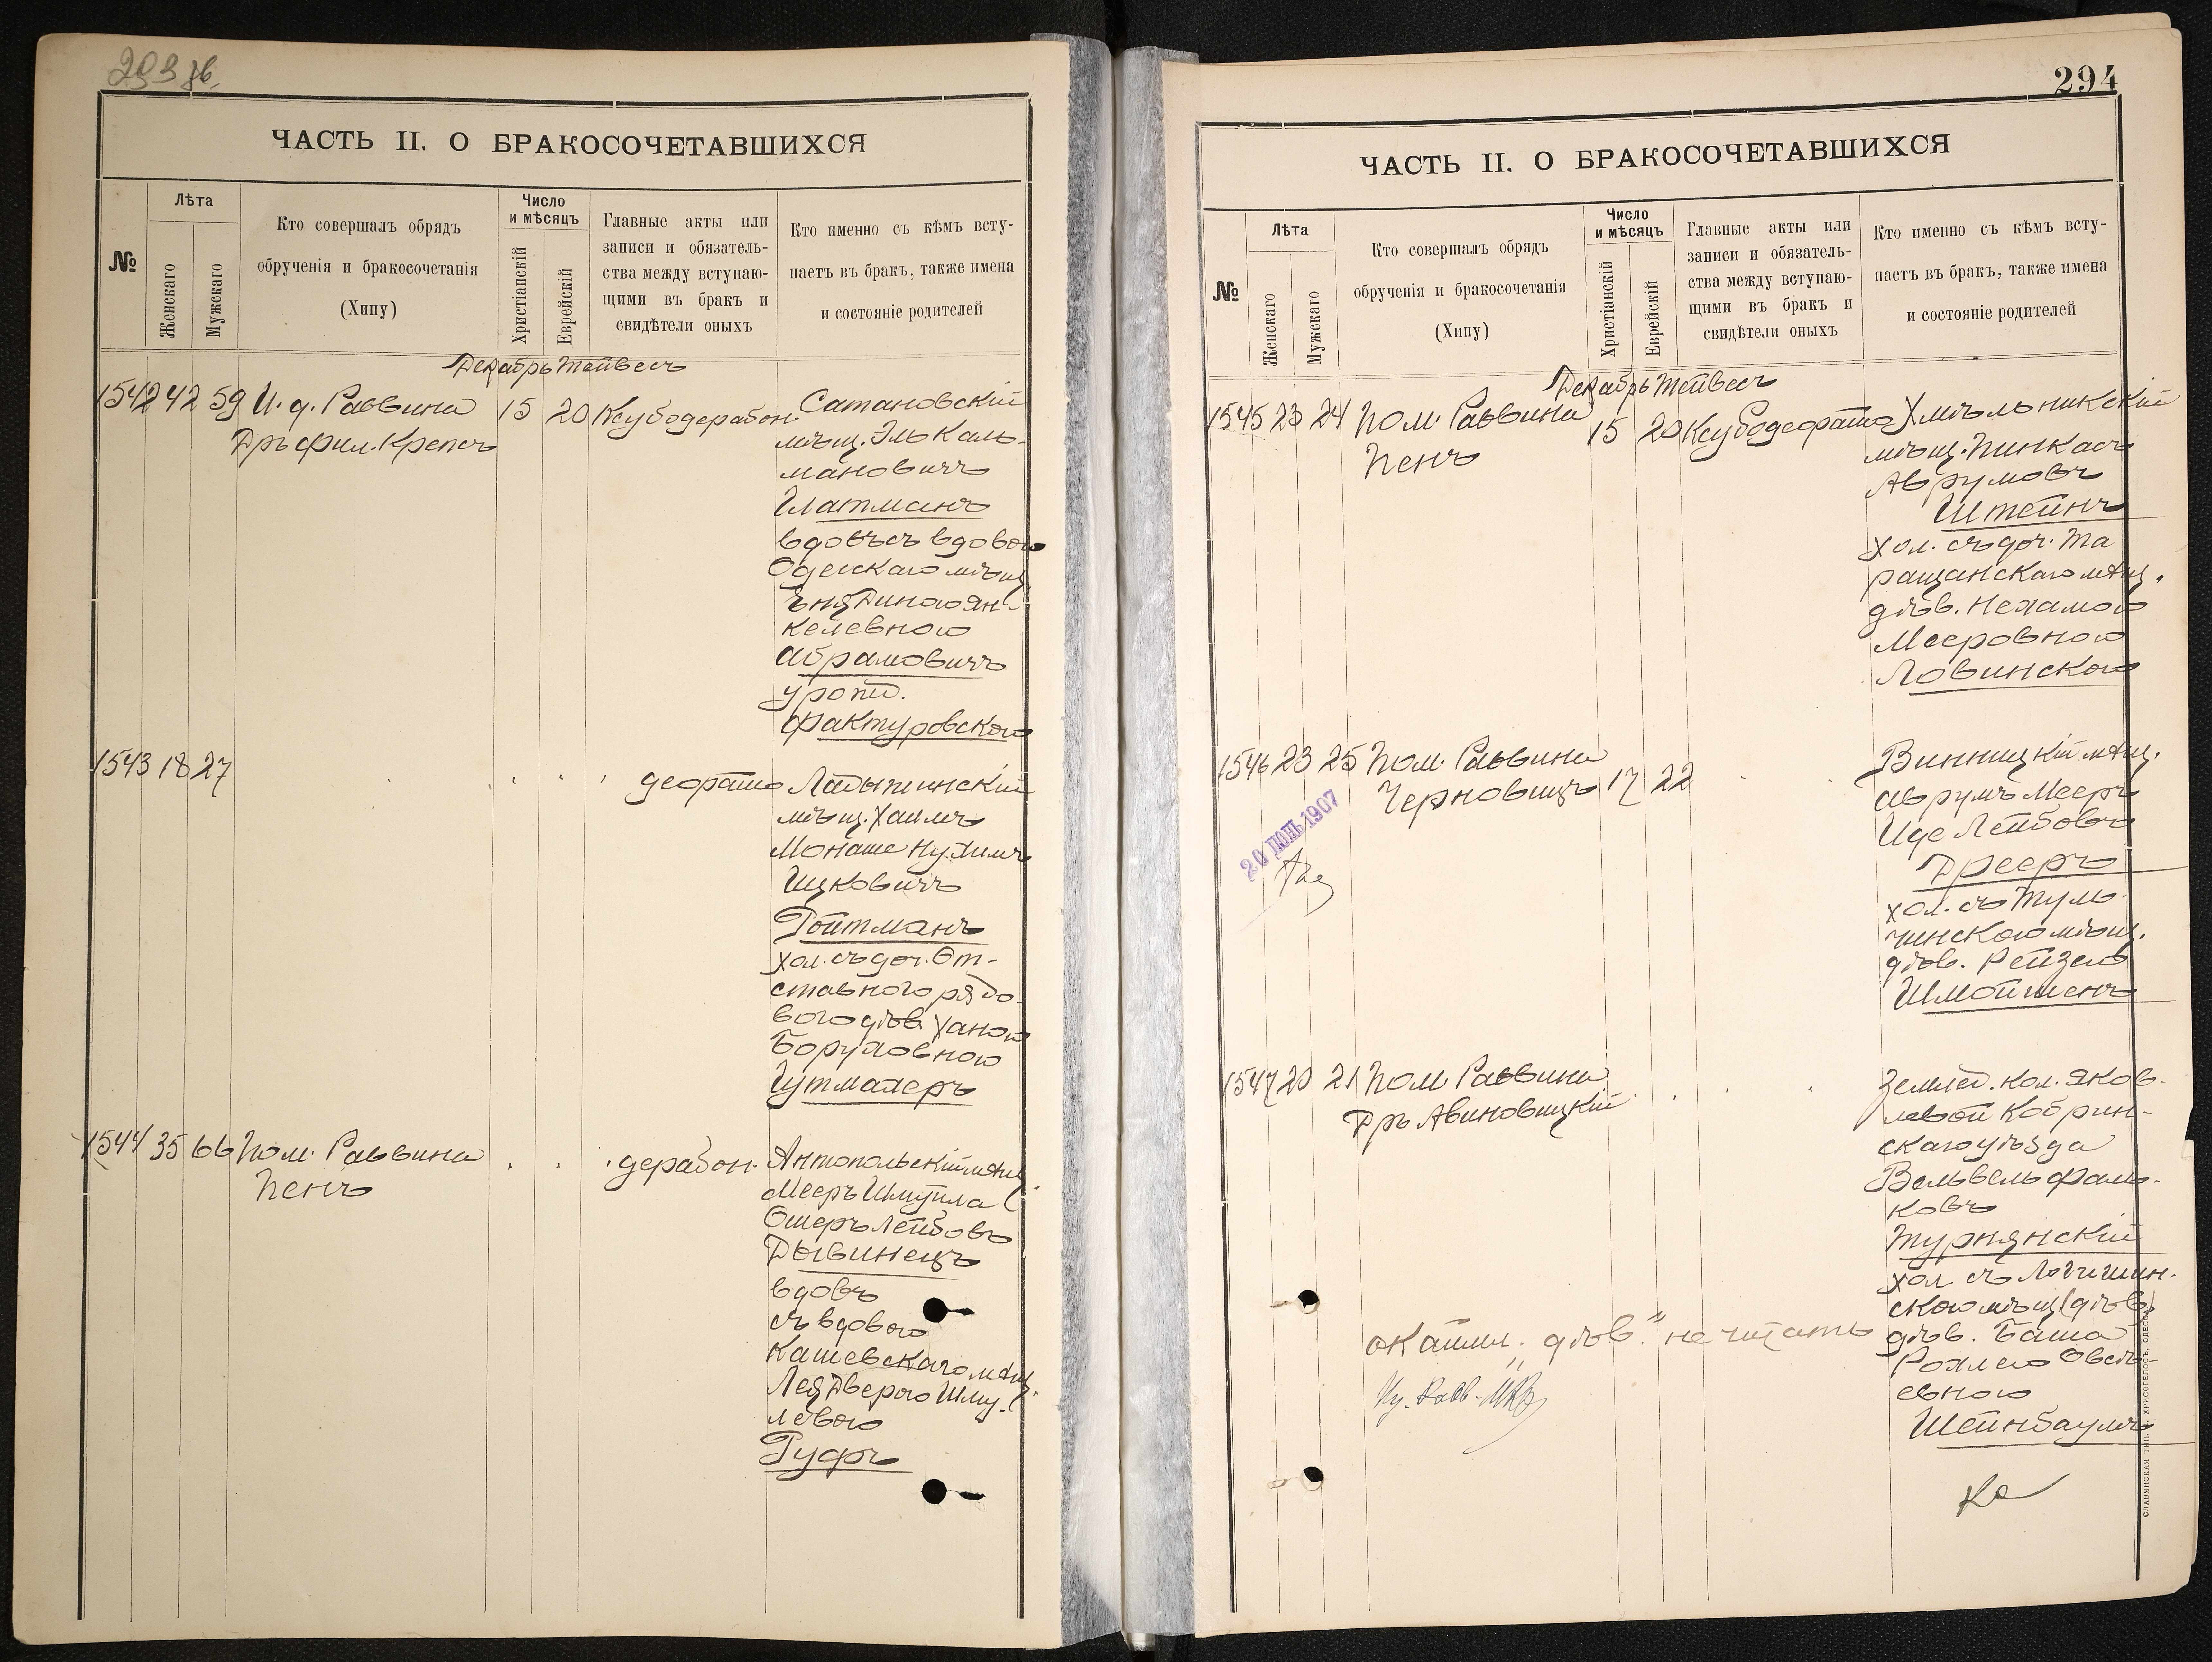 293 зв.
ЧАСТЬ II. О БРАКОСОЧЕТАВШИХСЯ
№
Лѣта
Женскаго
Мужскаго
Кто совершалъ обрядъ
обрученія и бракосочетанія
(Хипу)
Число
и мѣсяцъ
Христіанскій
Еврейскій
Главные акты или
записи и обязатель-
ства между вступаю-
щими въ бракъ и
свидѣтели оныхъ
Кто именно съ кѣмъ всту-
паетъ въ бракъ, также имена
и состояніе родителей
Декабрь Тейвесъ
1542 42 59 И. д. Раввина 15 20
Дръ фил. Крепсъ
Сатановскій
мѣщ. Эль Каль-
мановичъ
Глатманъ
вдовъ съ вдовою
Одесскаго мѣщ.
Янкелевною
Абрамовичъ
урожд.
Фактуровскою
1543 18 27
деорайто
Ладыжинскій
мѣщ. Хаимъ
Монаше Нухимъ
Ицковичъ
Ройтманъ
хол. съ доч. От-
ставного рядо-
вого дѣв. Ханою
Боруховною
Гутмахеръ
1544 35 66 Пом. Раввина
Пенъ
дерабон.
Антопольскій мѣщ.
Мееръ Шмуйла
Ошеръ Лейбовъ
Дывинецъ
вдовъ
съ вдовою
Кашевскаго мѣщ.
Лея Двероюо Шму-
левою
Руфъ
294
ЧАСТЬ II. О БРАКОСОЧЕТАВШИХСЯ
№
Лѣта
Женскаго
Мужскаго
Кто совершалъ обрядъ
обрученія и бракосочетанія
(Хипу)
Число
и мѣсяцъ
Христіанскій
Еврейскій
Главные акты или
записи и обязатель-
ства между вступаю-
щими въ бракъ и
свидѣтели оныхъ
Кто именно съ кѣмъ всту-
паетъ въ бракъ, также имена
и состояніе родителей
Декабрь Тейвесъ
1545 23 24 Пом. Раввина 15 20
Пенъ
Хмѣльникскій
мѣщ. Пинкасъ
Аврумовъ
Штейнъ
хол. съ доч. Та
ращанскаго мѣщ.
дѣв. Нехамою
Мееровною
Ловинскою
1546 23 25 Пом. Раввина
Черновицъ 17 22
20 ІЮНЬ 1907
Винницкій мѣщ.
Аврумъ Мееръ
Иде Лейбовъ
Дрееръ
хол. съ Туль-
чинскою мѣщ.
дѣв. Рейзею
Шмойшенъ
1547 20 21 Пом. Раввина
Дръ Авиновицкій
Землед. кол. Яков-
левой Кобрин-
скаго уѣзда
Вельвель Фаль-
ковъ
Турнянскій
хол съ Логишин-
скою мѣщ (дѣв)
дѣв. Баша
Рохлею Овсѣ-
евною
Шейнбаумъ
дѣв." не читать
СЛАВЯНСКАЯ ТИП. Е. ХРИСОГЕЛОСЪ, ОДЕССА